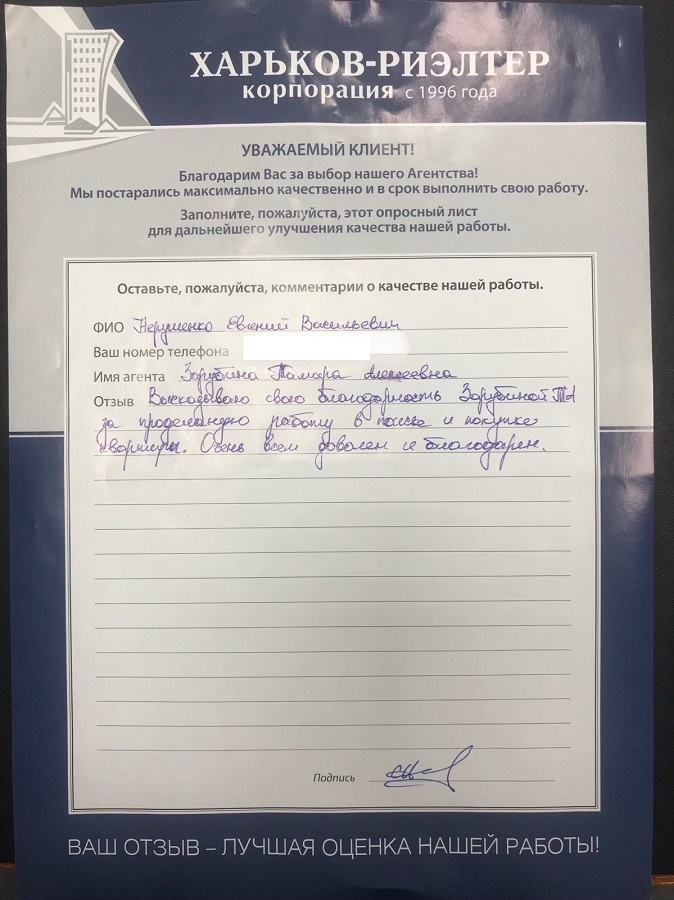 ХАРЬКОВ-РИЭЛТЕР
корпорация с 1996 года
УВАЖАЕМЫЙ КЛИЕНТ!
Благодарим Вас за выбор нашего Агентства!
Мы постарались максимально качественно и в срок выполнить свою работу.
Заполните, пожалуйста, этот опросный лист
для дальнейшего улучшения качества нашей работы.
Оставьте, пожалуйста, комментарии о качестве нашей работы.
ФИО Евгений Васильевич
Ваш номер телефона
Имя агента Зарубина Тамара Алексеевна
Отзыв свою благодарность Зарубиной ТА
за проделанную работу в и покупке
квартиры. Очень всем доволен и благодарен.
Подпись
ВАШ ОТЗЫВ – ЛУЧШАЯ ОЦЕНКА НАШЕЙ РАБОТЫ!